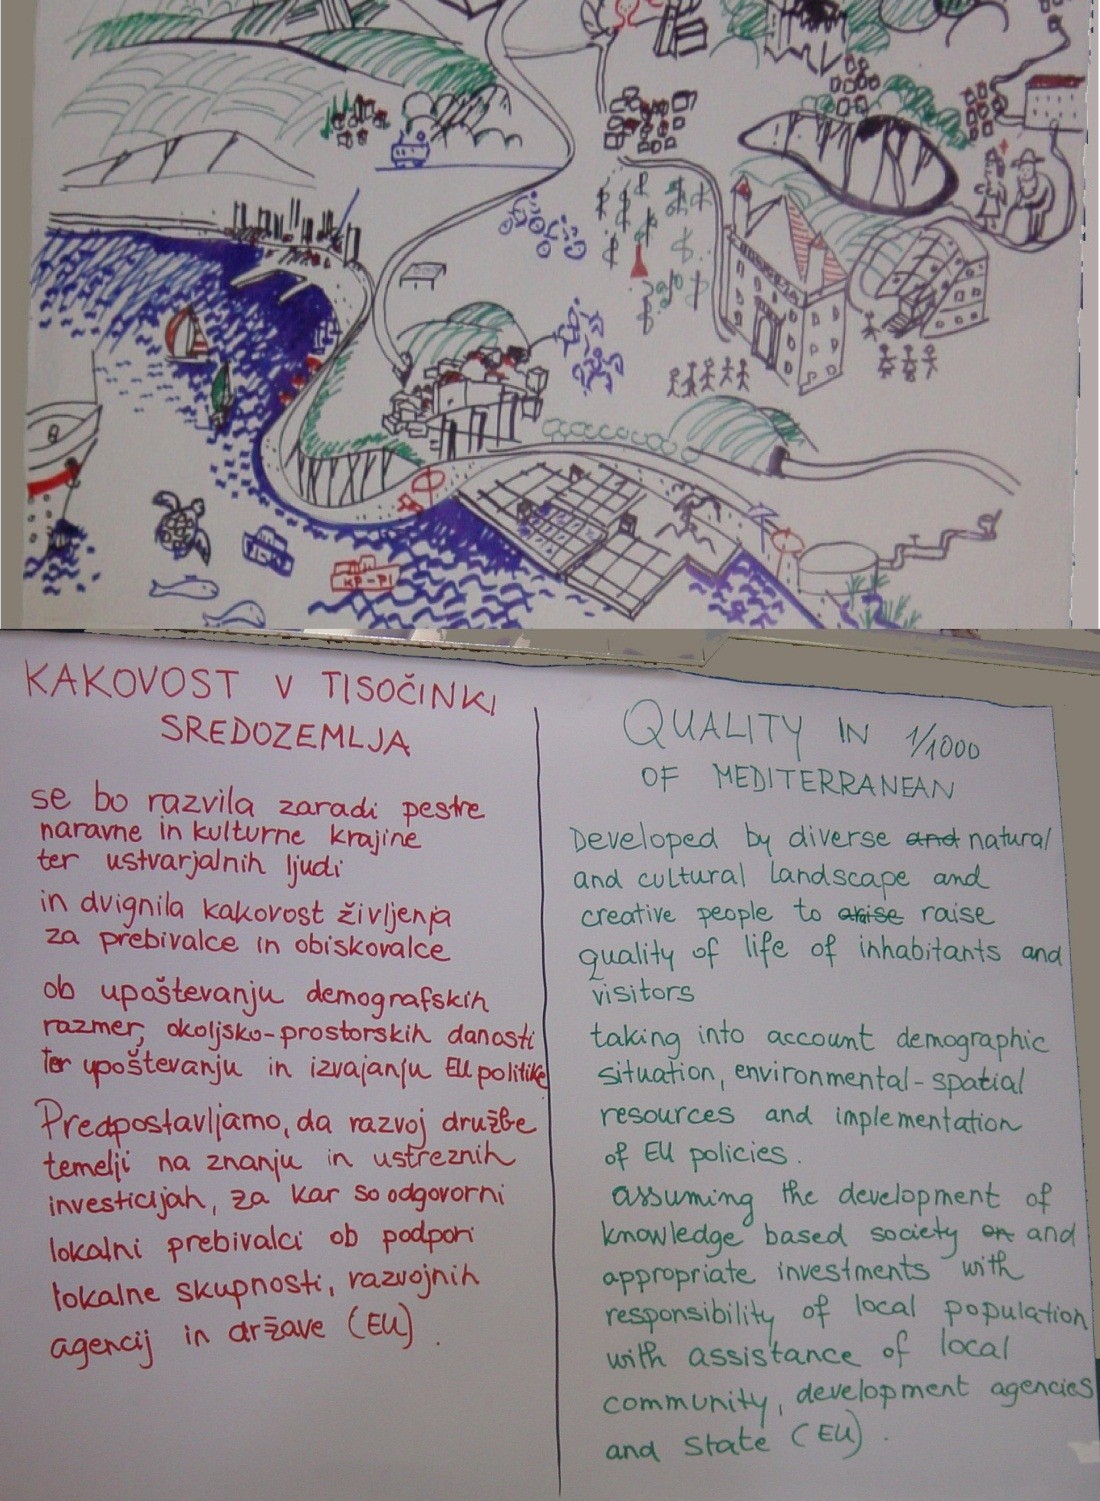 KP-PI
KAKOVOST V TISOČINKI
SREDOZEMLJA
se bo razvila zaradi pestre
naravne in kulturne krajine
ter ustvarjalnih ljudi
in dvignila kakovost življenja
za prebivalce in obiskovalce
ob upoštevanju demografskih
razmer, okoljsko-prostorskih danosti
ter upoštevanju in izvajanju EU politike
Predpostavljamo, da razvoj družbe
temelji na znanju in ustreznih
investicijah, za kar so odgovorni
lokalni prebivalci ob podpori
lokalne skupnosti, razvojnih
agencij in države (EU).
QUALITY IN 1/1000
OF MEDITERRANEAN
Developed by diverse and natural
and cultural landscape and
creative people to arise raise
quality of life of inhabitants and
visitors
taking into account demographic
situation, environmental-spatial
resources and implementation
of EU policies.
assuming the development of
knowledge based society on and
appropriate investments with
responsibility of local population
with assistance of local
community, development agencies
and State (EU).